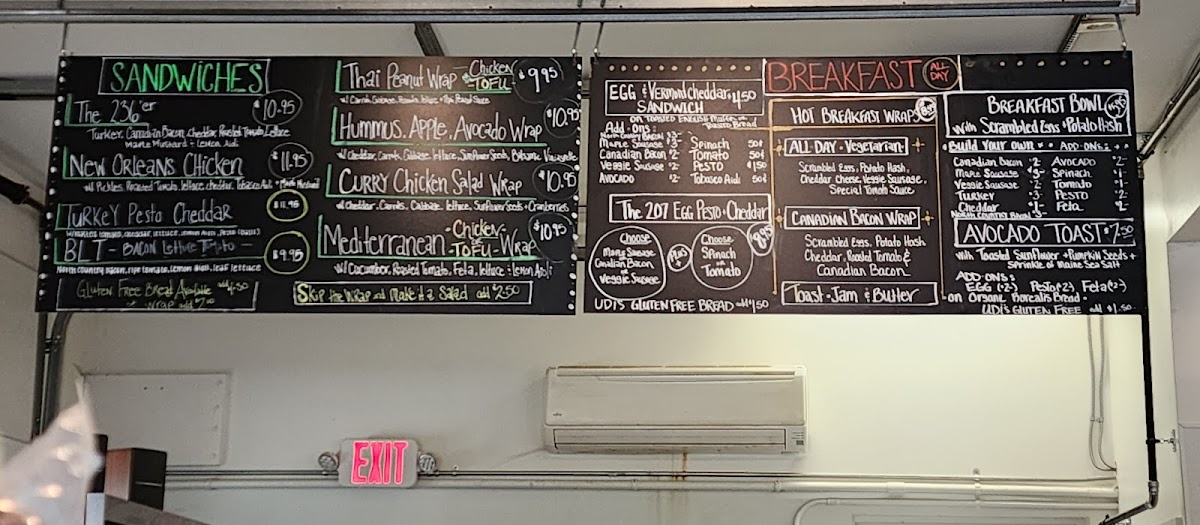 SANDWICHES
The 236'er $10.95
Turkey, Canadian Bacon, Cheddar, Roasted Tomato, Lettuce
Maple Mustard + Lemon Aioli
New Orleans Chicken $11.95
w/ Pickles, Roasted Tomato, lettuce, cheddar, Tobasco Aioli + Maple Mustard
Turkey Pesto Cheddar $11.95
BLT - Bacon lettuce Tomato - $9.95
North country bacon, ripe tomato, lemon aioli, leaf lettuce
Gluten Free Bread Available add $1.50
or wrap add
Thai Peanut Wrap - Chicken or TOFU $9.95
w/ Carrots, Cabbage, Romaine lettuce + Thai Peanut Sauce
Hummus, Apple, Avocado Wrap $10.95
w/ Cheddar, Carrots, Cabbage, lettuce, Sunflower Seeds, Balsamic Vinaigrette
Curry Chicken Salad Wrap $10.95
w/ Cheddar, Carrots, Cabbage, lettuce, Sunflower Seeds + Cranberries
Mediterranean - Chicken or TOFU - Wrap $10.95
w/ Cucumber, Roasted Tomato, Feta, lettuce + Lemon Aioli
Skip the Wrap and Make it a Salad add $2.50
BREAKFAST ALL DAY
EGG & Vermont cheddar $4.50
SANDWICH
on Toasted English Muffin or Toasted Bread
Add-Ons:
North Country Bacon $3-
Maple Sausage $3-
Canadian Bacon $2-
Veggie Sausage $2-
Avocado $2-
Spinach 50¢
Tomato 50¢
Pesto $1.50
Tobasco Aioli 50¢
The 207 Egg Pesto + Cheddar $8.95
Choose
Maple Sausage
or
Canadian Bacon
or
Veggie Sausage
Plus
Choose
Spinach
or
Tomato
UDI'S GLUTEN FREE BREAD add $1.50
HOT BREAKFAST WRAPS
ALL-DAY - Vegetarian
Scrambled Eggs, Potato Hash,
Cheddar Cheese, Veggie Sausage,
Special Tomato Sauce
CANADIAN BACON WRAP
Scrambled Eggs, Potato Hash
Cheddar, Roasted Tomato &
Canadian Bacon
Toast - Jam & Butter
BREAKFAST BOWL
with Scrambled Eggs + Potato Hash
Build Your Own - ADD-ONS
Canadian Bacon $2-
Maple Sausage $3-
Veggie Sausage $2-
Turkey $2-
Cheddar $1-
North Country Bacon $3-
Avocado $2-
Spinach $1-
Tomato $1-
Pesto
Feta $2-
AVOCADO TOAST $7.50
with Toasted Sunflower + Pumpkin Seeds +
Sprinkle of Maine Sea Salt
ADD-ONS:
EGG ($2-) Pesto ($2-) Feta ($2-)
on Organic Borealis Bread -
UDI'S GLUTEN FREE add $1.50
EXIT